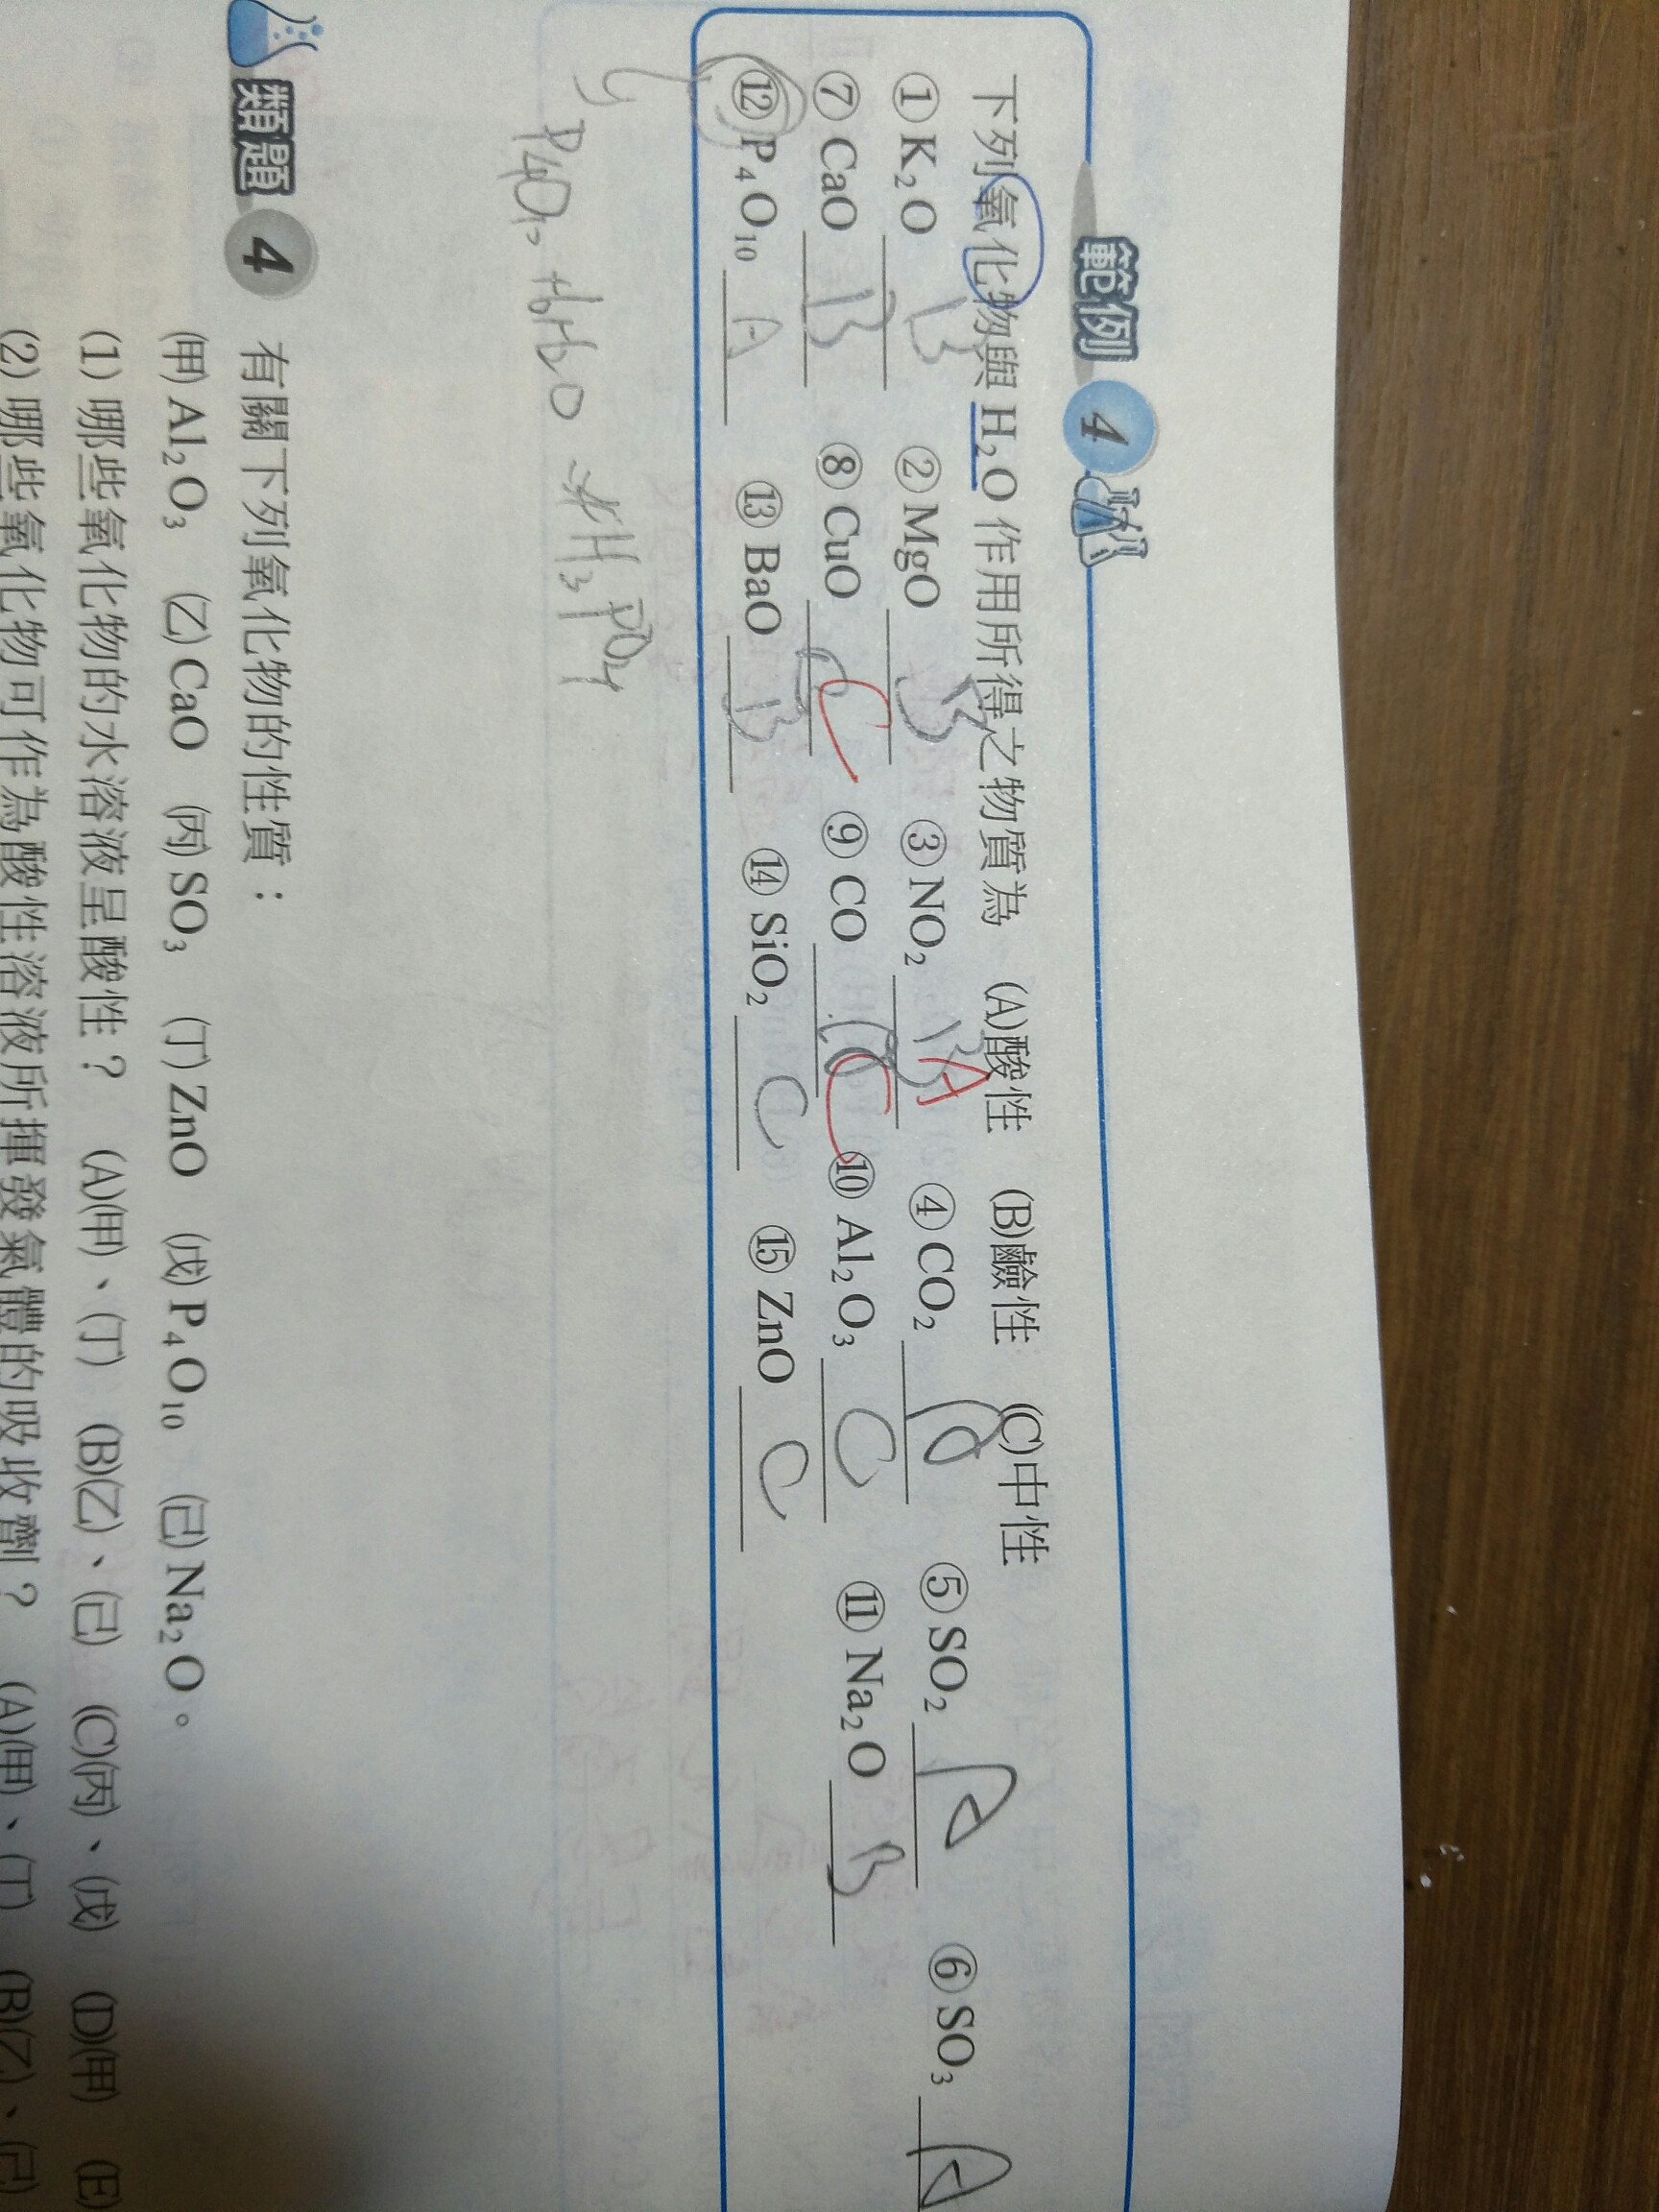 範例 4
下列氧化物與 H₂O 作用所得之物質為 (A)酸性 (B)鹼性 (C)中性
① K₂O B ② MgO B ③ NO₂ A ④ CO₂ A ⑤ SO₂ A ⑥ SO₃ A
⑦ CaO B ⑧ CuO C ⑨ CO C ⑩ Al₂O₃ C ⑪ Na₂O B
⑫ P₄O₁₀ A ⑬ BaO B ⑭ SiO₂ C ⑮ ZnO C
P₄O₁₀ + 6H₂O → 4H₃PO₄
類題 4 有關下列氧化物的性質：
(甲) Al₂O₃ (乙) CaO (丙) SO₃ (丁) ZnO (戊) P₄O₁₀ (己) Na₂O。
(1) 哪些氧化物的水溶液呈酸性？ (A)(甲)、(丁) (B)(乙)、(己) (C)(丙)、(戊) (D)(甲) (E)
(2) 哪些氧化物可作為酸性溶液所揮發氣體的吸收劑？ (A)(甲)、(丁) (B)(乙)、(己)